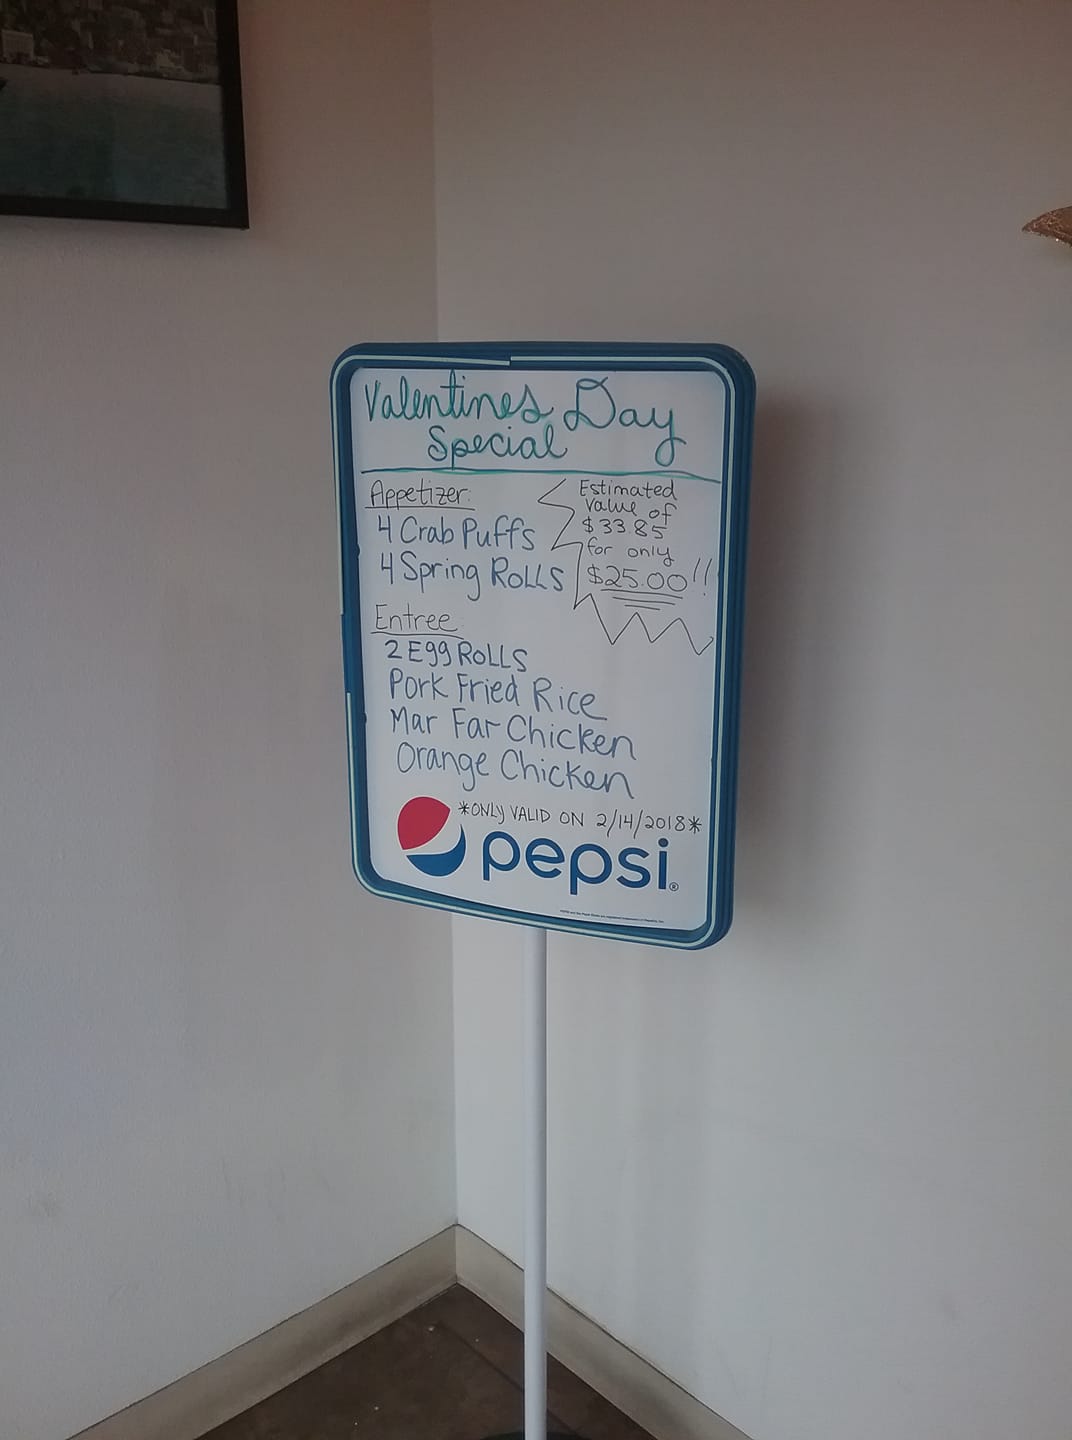 Valentines Day
Special
Appetizer:
4 Crab Puffs
4 Spring Rolls
Estimated
Value of
$33.85
for only
$25.00!!
Entree
2 Egg Rolls
Pork Fried Rice
Mar Far Chicken
Orange Chicken
*ONLY VALID ON 2/14/2018*
pepsi®